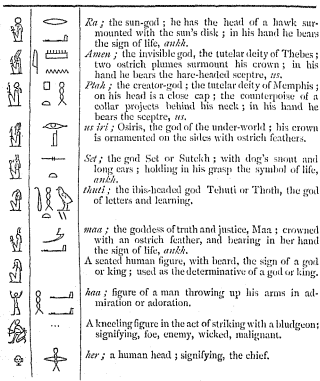 Ra; the sun-god; he has the head of a hawk sur-
mounted with the sun's disk; in his hand he bears
the sign of life, ankh.
Amen; the invisible god, the tutelar deity of Thebes;
two ostrich plumes surmount his crown; in his
hand he bears the hare-headed sceptre, us.
Ptah; the creator-god; the tutelar deity of Memphis;
on his head is a close cap; the counterpoise of a
collar projects behind his neck; in his hand he
bears the sceptre, us.
us iri; Osiris, the god of the under-world; his crown
is ornamented on the sides with ostrich feathers.
Set; the god Set or Sutekh; with dog's snout and
long ears; holding in his grasp the symbol of life,
ankh.
thuti; the ibis-headed god Tehuti or Thoth, the god
of letters and learning.
maa; the goddess of truth and justice, Maa; crowned
with an ostrich feather, and bearing in her hand
the sign of life, ankh.
A seated human figure, with beard, the sign of a god
or king; used as the determinative of a god or king.
haa; figure of a man throwing up his arms in ad-
miration or adoration.
... A kneeling figure in the act of striking with a bludgeon;
signifying, foe, enemy, wicked, malignant.
her; a human head; signifying, the chief.